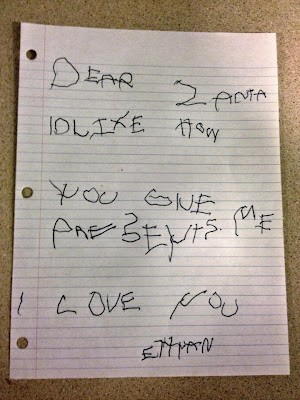 DEAR ZANTA
IDLIKE HOW
YOU GIVE
PRESENTS ME
I LOVE YOU
ETHAN